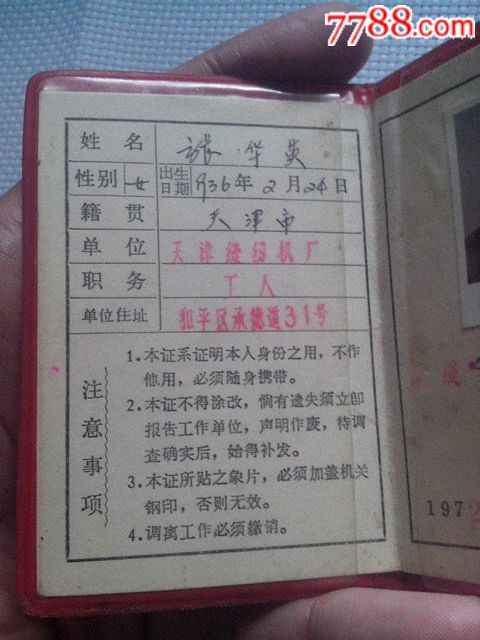 7788.com
姓名 张华英
性别 女 出生日期 1936年2月24日
籍贯 天津市
单位 天津缝纫机厂
职务 工人
单位住址 和平区承德道31号
注意事项
1.本证系证明本人身份之用，不作
他用，必须随身携带。
2.本证不得涂改，倘有遗失须立即
报告工作单位，声明作废，待调
查确实后，始得补发。
3.本证所贴之象片，必须加盖机关
钢印，否则无效。
4.调离工作必须缴销。
缝
1972